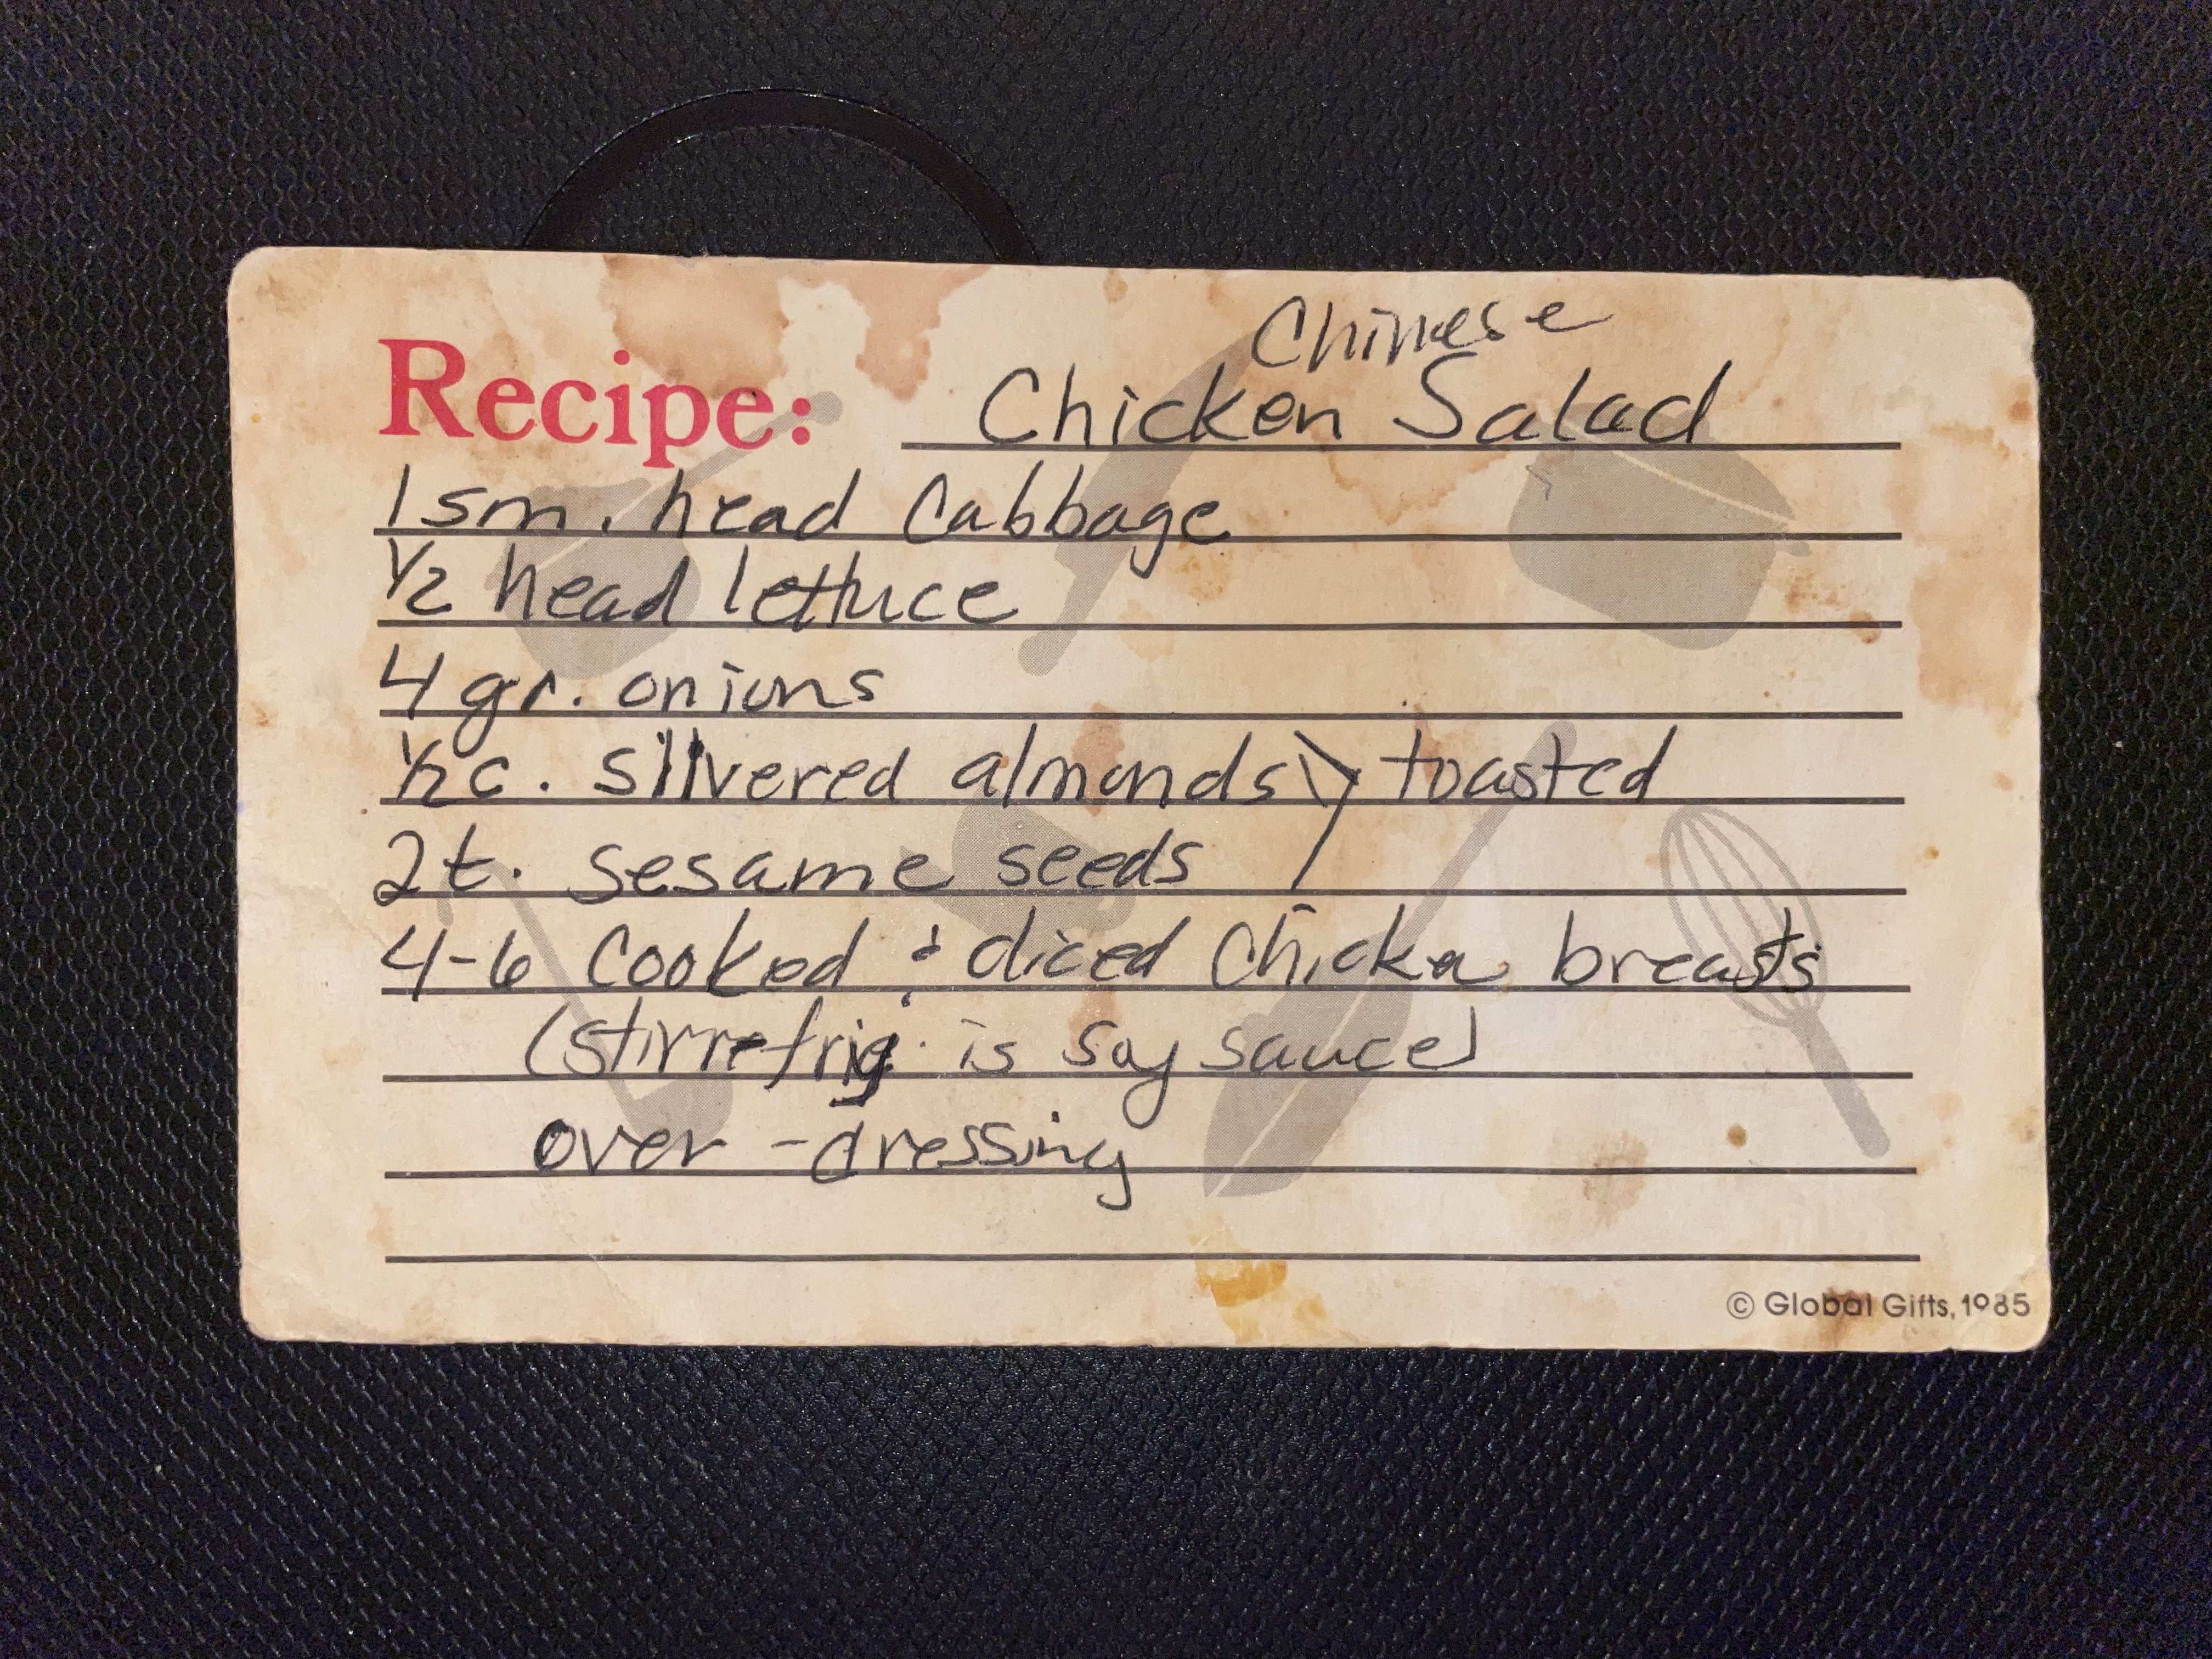 Chinese
Recipe: Chicken Salad
1 sm. head Cabbage
1/2 head lettuce
4 gr. onions
1/2 c. slivered almonds } toasted
2 t. sesame seeds
4-6 Cooked & diced Chicken breasts
(stirrefrig is soy sauce)
over - dressing
© Global Gifts, 1985